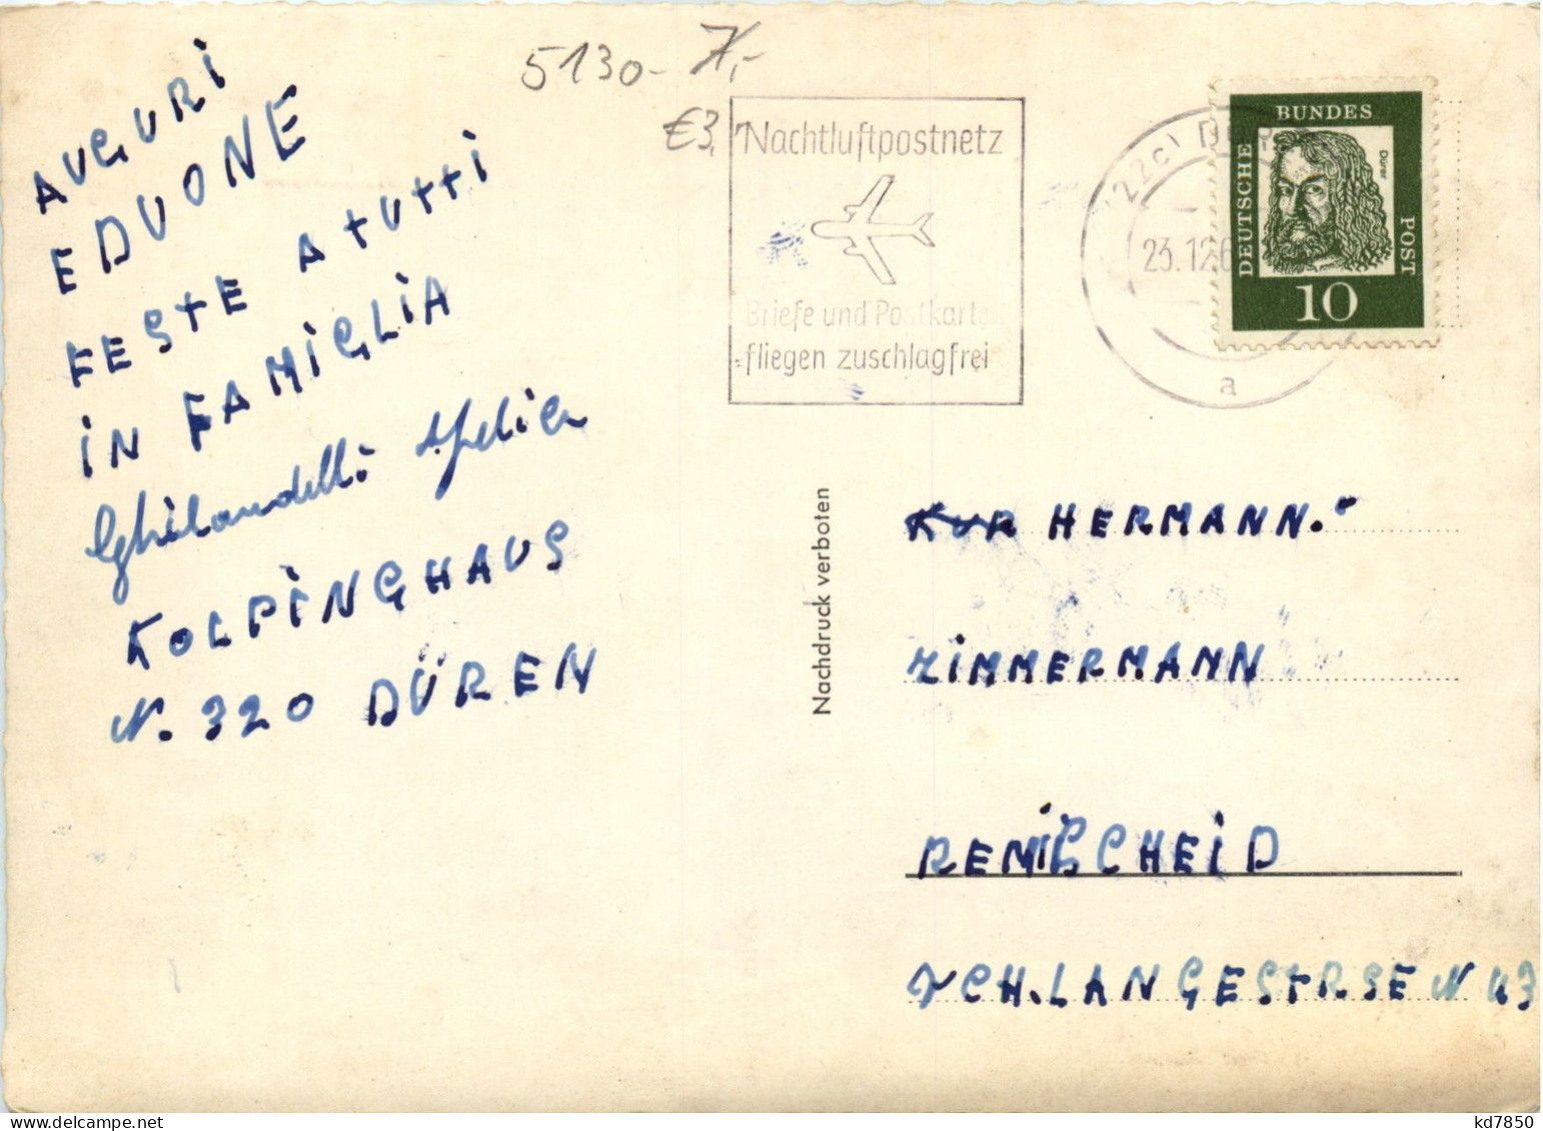 5130- 7,-
€3,
AUGURI
E DUONE
FESTE A tUttI
iN FAMiGLiA
Ghilandelli
KOLPiNGHAUS
N. 320 DÜREN
Nachtluftpostnetz
Briefe und Postkarten
fliegen zuschlagfrei
(22c)
23.12.6
a
DEUTSCHE
BUNDES
POST
Dürer
10
Nachdruck verboten
HERMANN.
ZiMMERMANN
REMiSCHEiD
SCH.LANGESTRSE N 43
kd7850